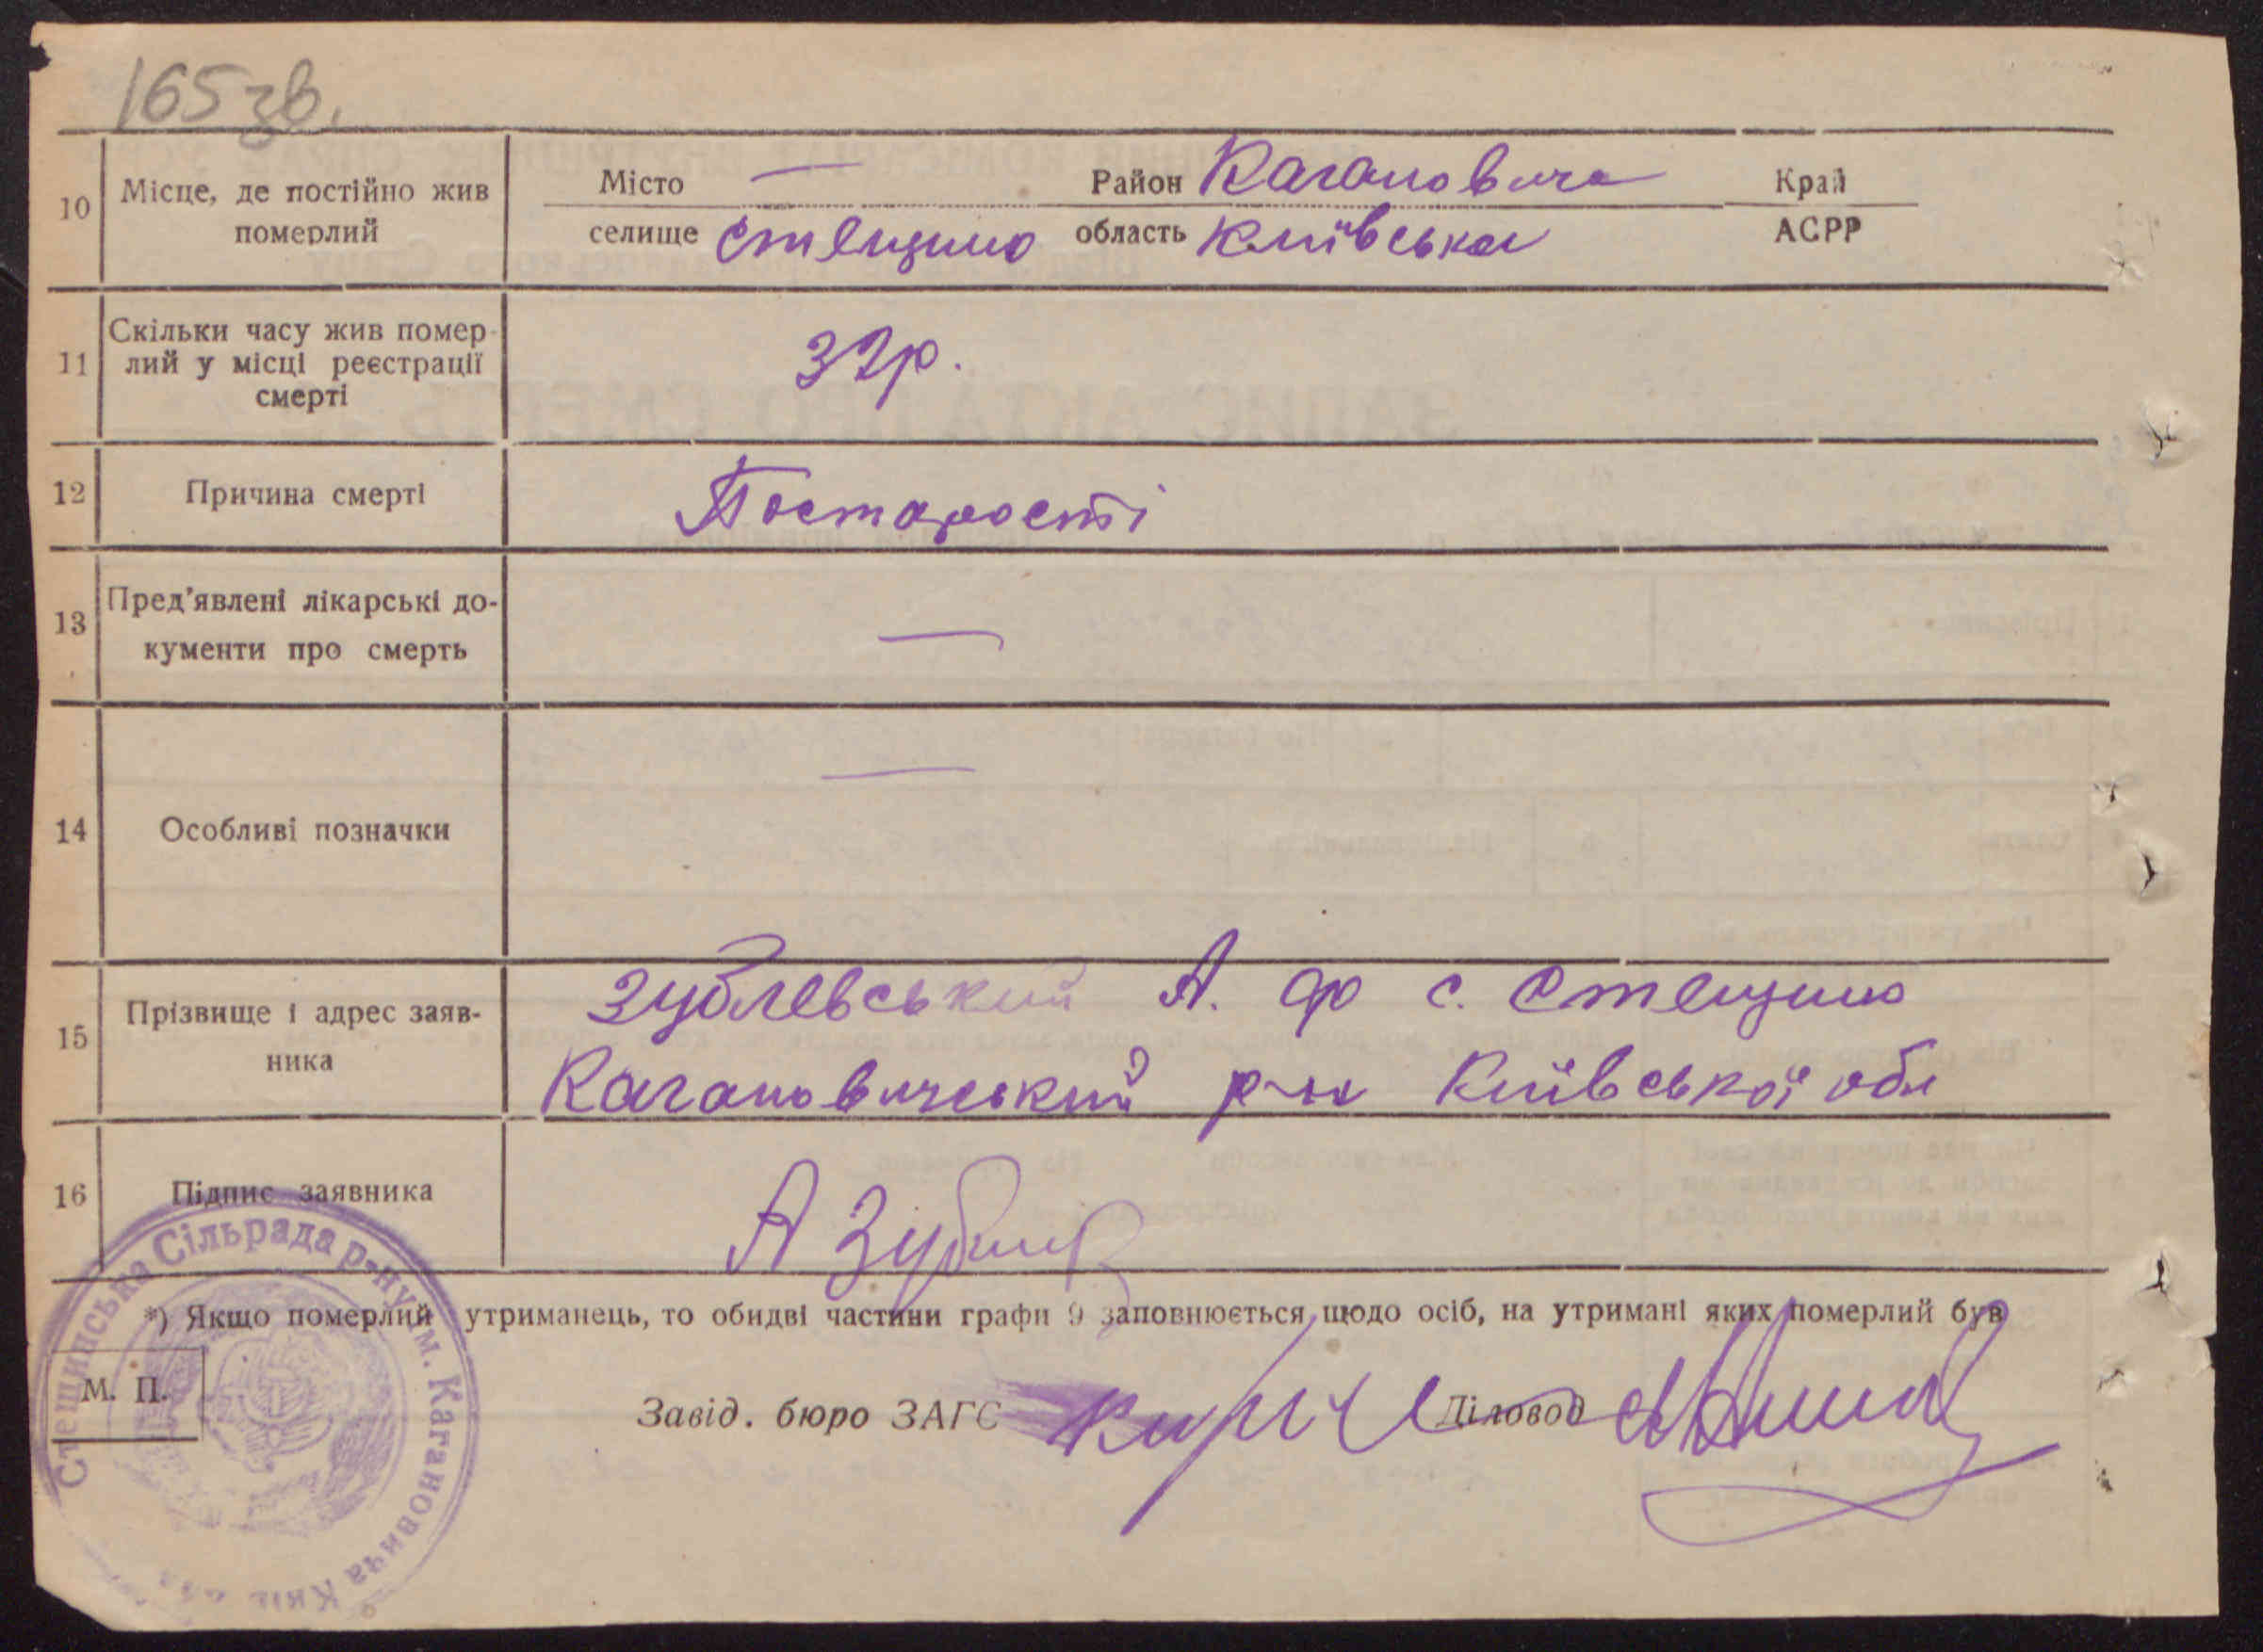 165 зв.
10 Місце, де постійно жив померлий
Місто — Район Кагановича Край
селище Стещино область Київська АСРР
11 Скільки часу жив помер-
лий у місці реєстрації
смерті
32р.
12 Причина смерті Постарості
13 Пред'явлені лікарські до-
кументи про смерть
—
14 Особливі позначки —
15 Прізвище і адрес заяв-
ника
Зублевський А. Ф с. Стещино
Кагановичський р-н Київської обл
16 Підпис заявника
А Зубл
*) Якщо померлий утриманець, то обидві частини графи 9 заповнюється, щодо осіб, на утримані яких померлий був
М. П.
Завід. бюро ЗАГС Діловод
Стещинська Сільрада р-ну ім. Кагановича Київ